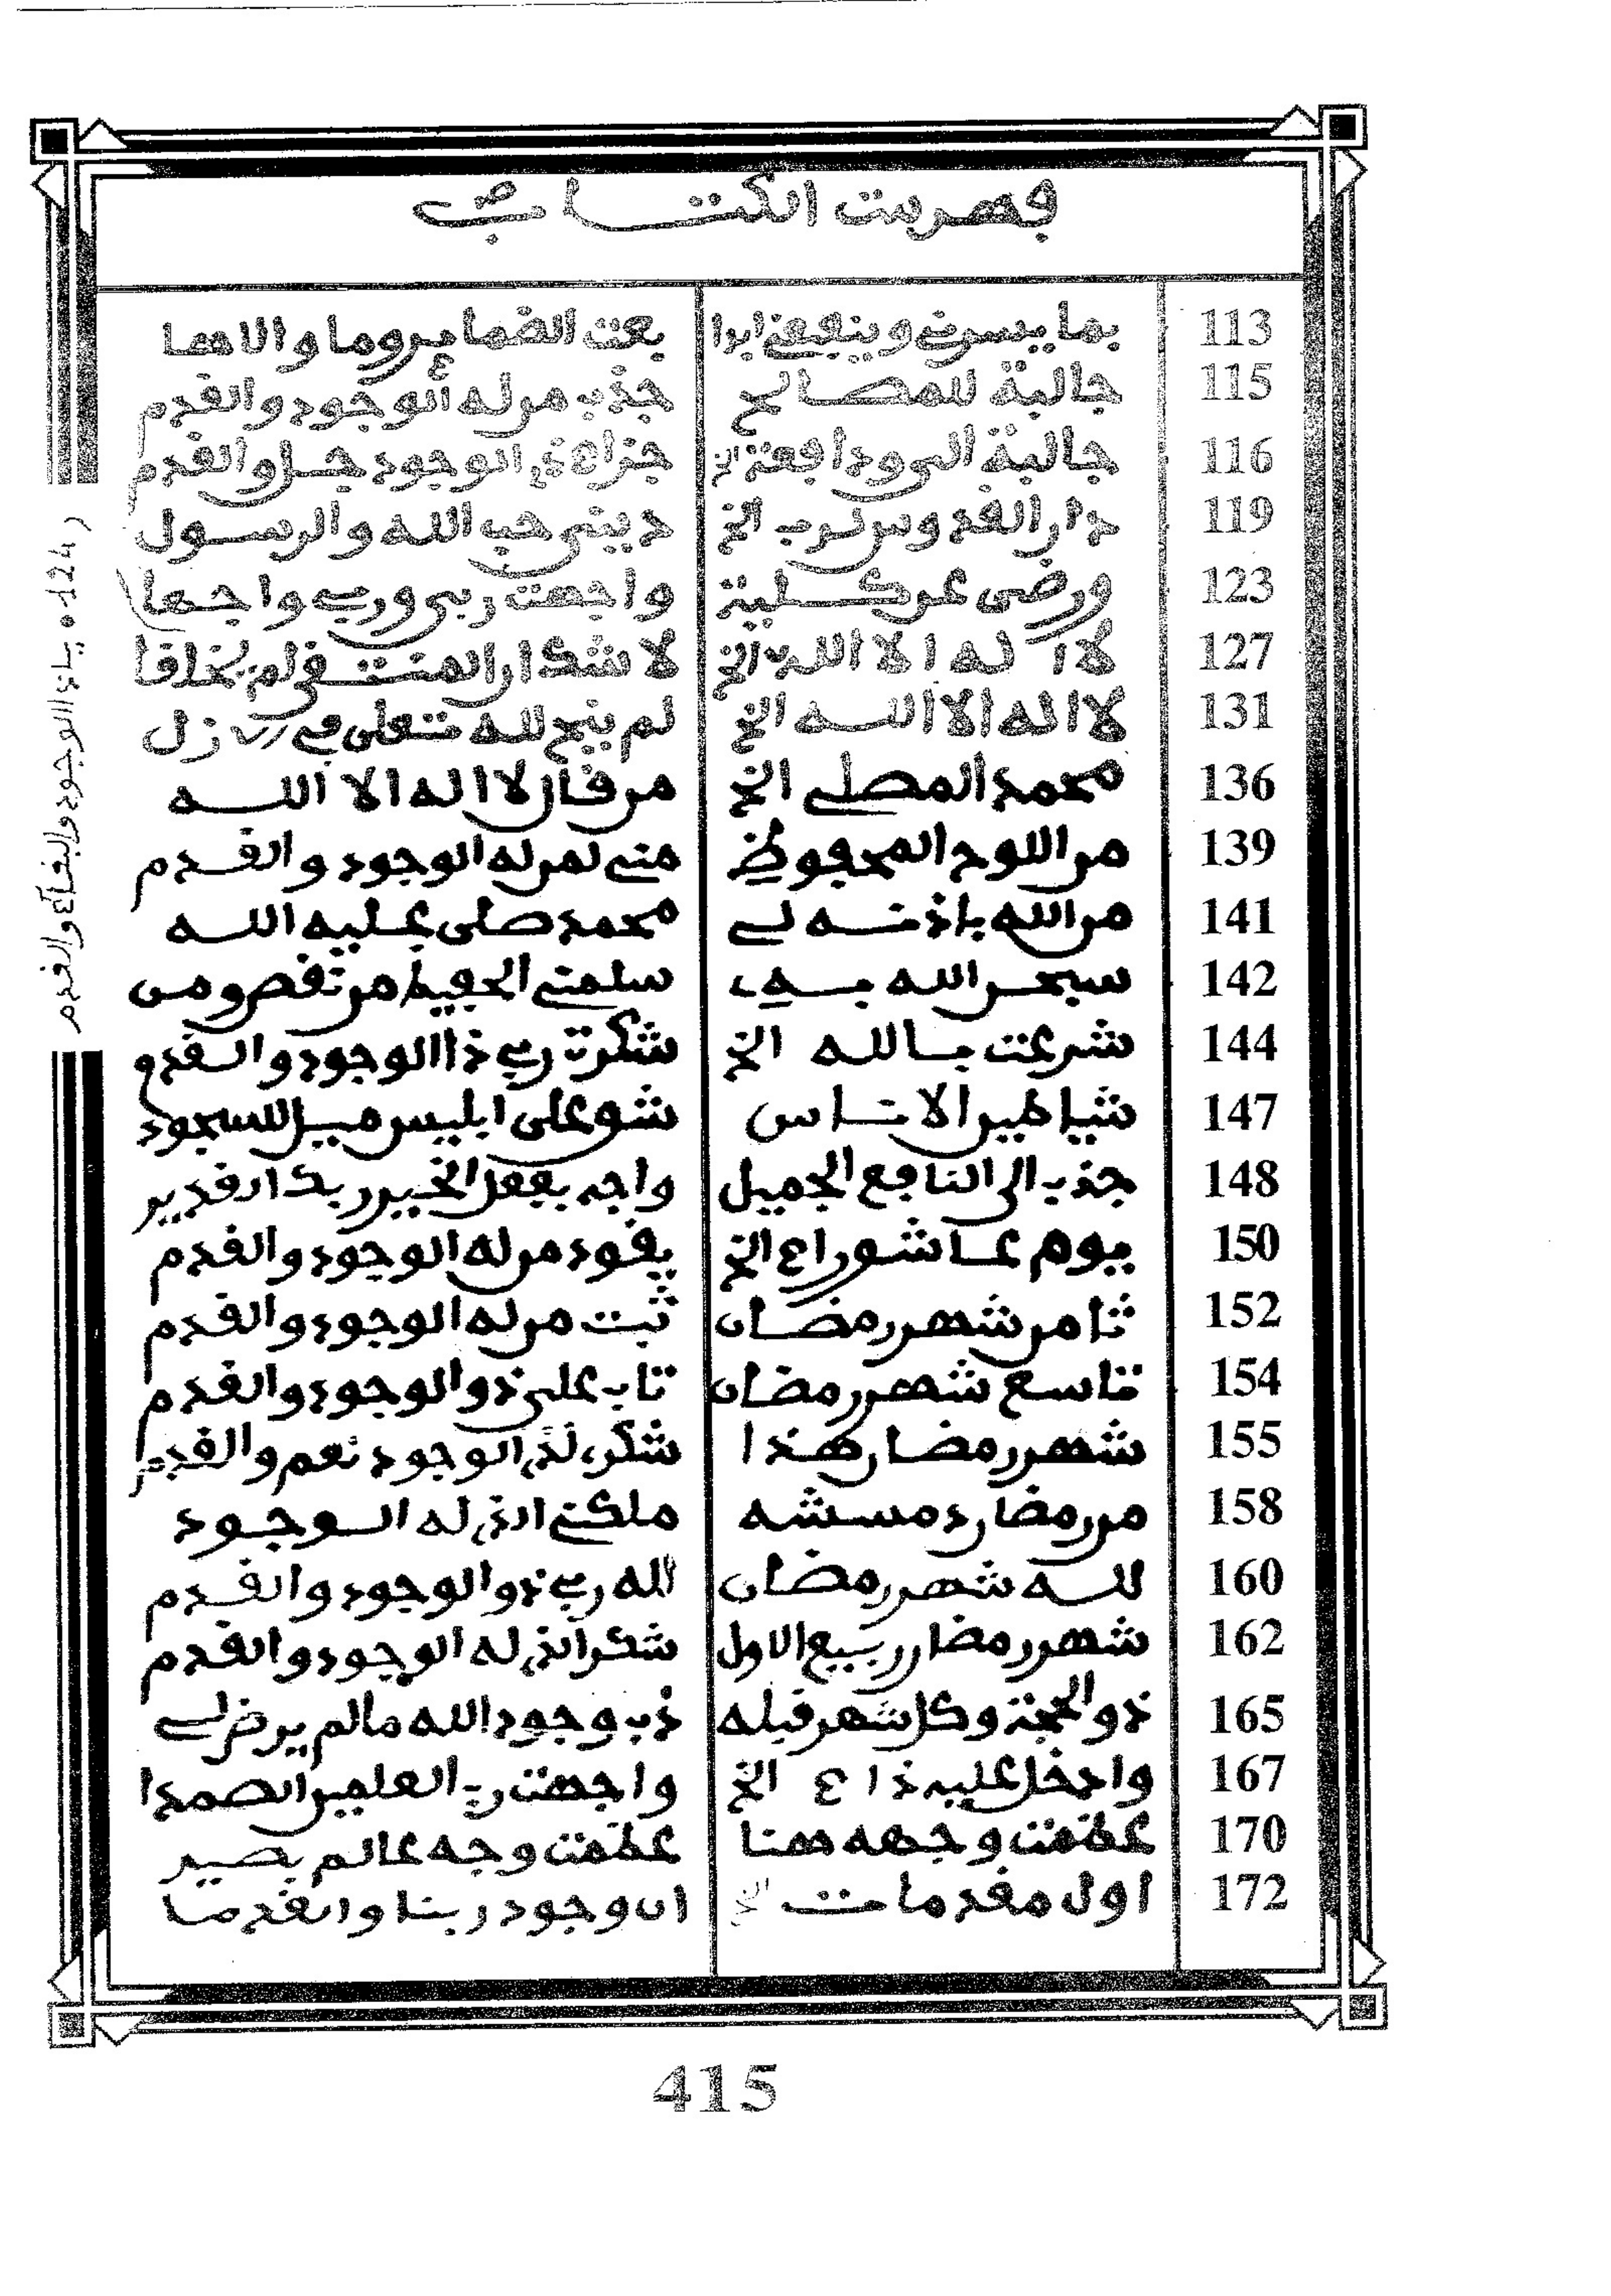 فهرست الكتاب
113 بما يسرني وينفعني ابدا بعت الضما يروما والاهما
115 جالبة للمصالح جذب من له الوجود والقدم
116 جالبة البر ودافعة الخ جزاء ذي الوجود جل والقدم
119 دار القدوس لرب الخ ديني حب الله والرسول
123 ورضى عن كلية واجهت ربي ورب واجها
127 لا اله الا الله الخ لا شك ان المنتقى لم يخلقا
131 لا اله الا الله الخ لم ينح لله تعلى في زل
136 محمد المصلي الخ من قال لا اله الا الله
139 من اللوح المحفوظ مني لمن له الوجود والقدم
141 من الله باذنه لي محمد صلى عليه الله
142 سبحن الله به سلمني الحفيظ من نقص ومن
144 شرعت بالله الخ شكرت ربي ذا الوجود والقدم
147 شياطين الاناس شو على ابليس مين للسجود
148 جذب الى النافع الجميل واجه بفعل الخير ربك القدير
150 يوم عاشوراء الخ يقود من له الوجود والقدم
152 ثامن شهر رمضان ثبت من له الوجود والقدم
154 تاسع شهر رمضان تاب علي ذو الوجود والقدم
155 شهر رمضان هذا شكري لذي الوجود نعم والقدم
158 من رمضان دمسشه ملكني الذي له الوجود
160 لله شهر رمضان الله ربي ذو الوجود والقدم
162 شهر رمضان ربيع الاول شكر الذي له الوجود والقدم
165 ذو الحجة وكل شهر قبله ذب وجود الله ما لم يرض لي
167 وادخل عليه ذا ء الخ واجهت رب العلمين الصمدا
170 عظمت وجهه هنا عظمت وجه عالم بصير
172 اول مقدمات الخ ان وجود ربنا والقدما
( 124 • ياذا الوجود والبقاء والقدم
415